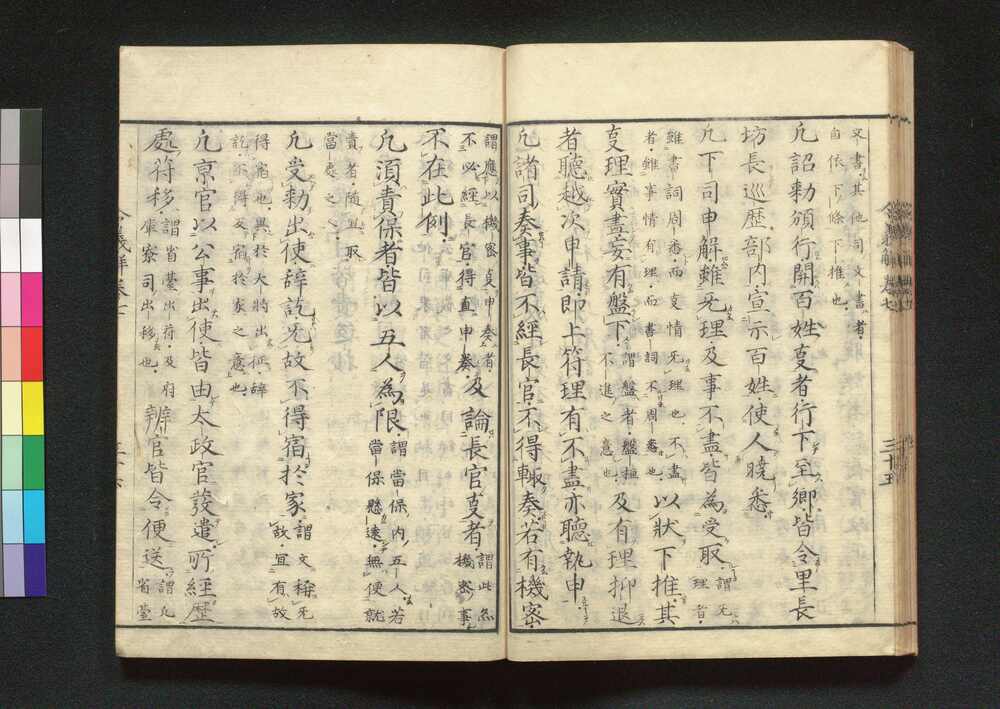 文書其他司文書者
自依下條下推也
凡詔勅頒行関百姓叓者行下至郷皆令里長
坊長巡歴部内宣示百姓使人暁悉
凡下司申解雖无理及事不盡皆為受取謂无理者
雖書詞周悉而叓情无理也不盡
者雖事情有理而書詞不周悉也以状下推其
叓理實盡妄有盤下謂盤者盤桓
不進之意也及有理抑退
者聴越次申請即上符理有不盡亦聴執申
凡諸司奏事皆不経長官不得輙奏若有機密
三十五
謂應以機密叓申奏者
不必經長官得直申奏及論長官叓者謂此亦
機密事
不在此例
凡須責保者皆以五人為限謂當保内五人若
當保懸遠無便就
責者随且取
當處之
凡受勅出使辞訖无故不得宿於家謂文称无
故宜有故
得宿也異於大将出征辞
訖不得反宿於家之意也
凡京官以公事出使皆由太政官發遣所経歴
處符移謂省臺出符及府
庫寮司出移也辨官皆令便送謂凡
省臺